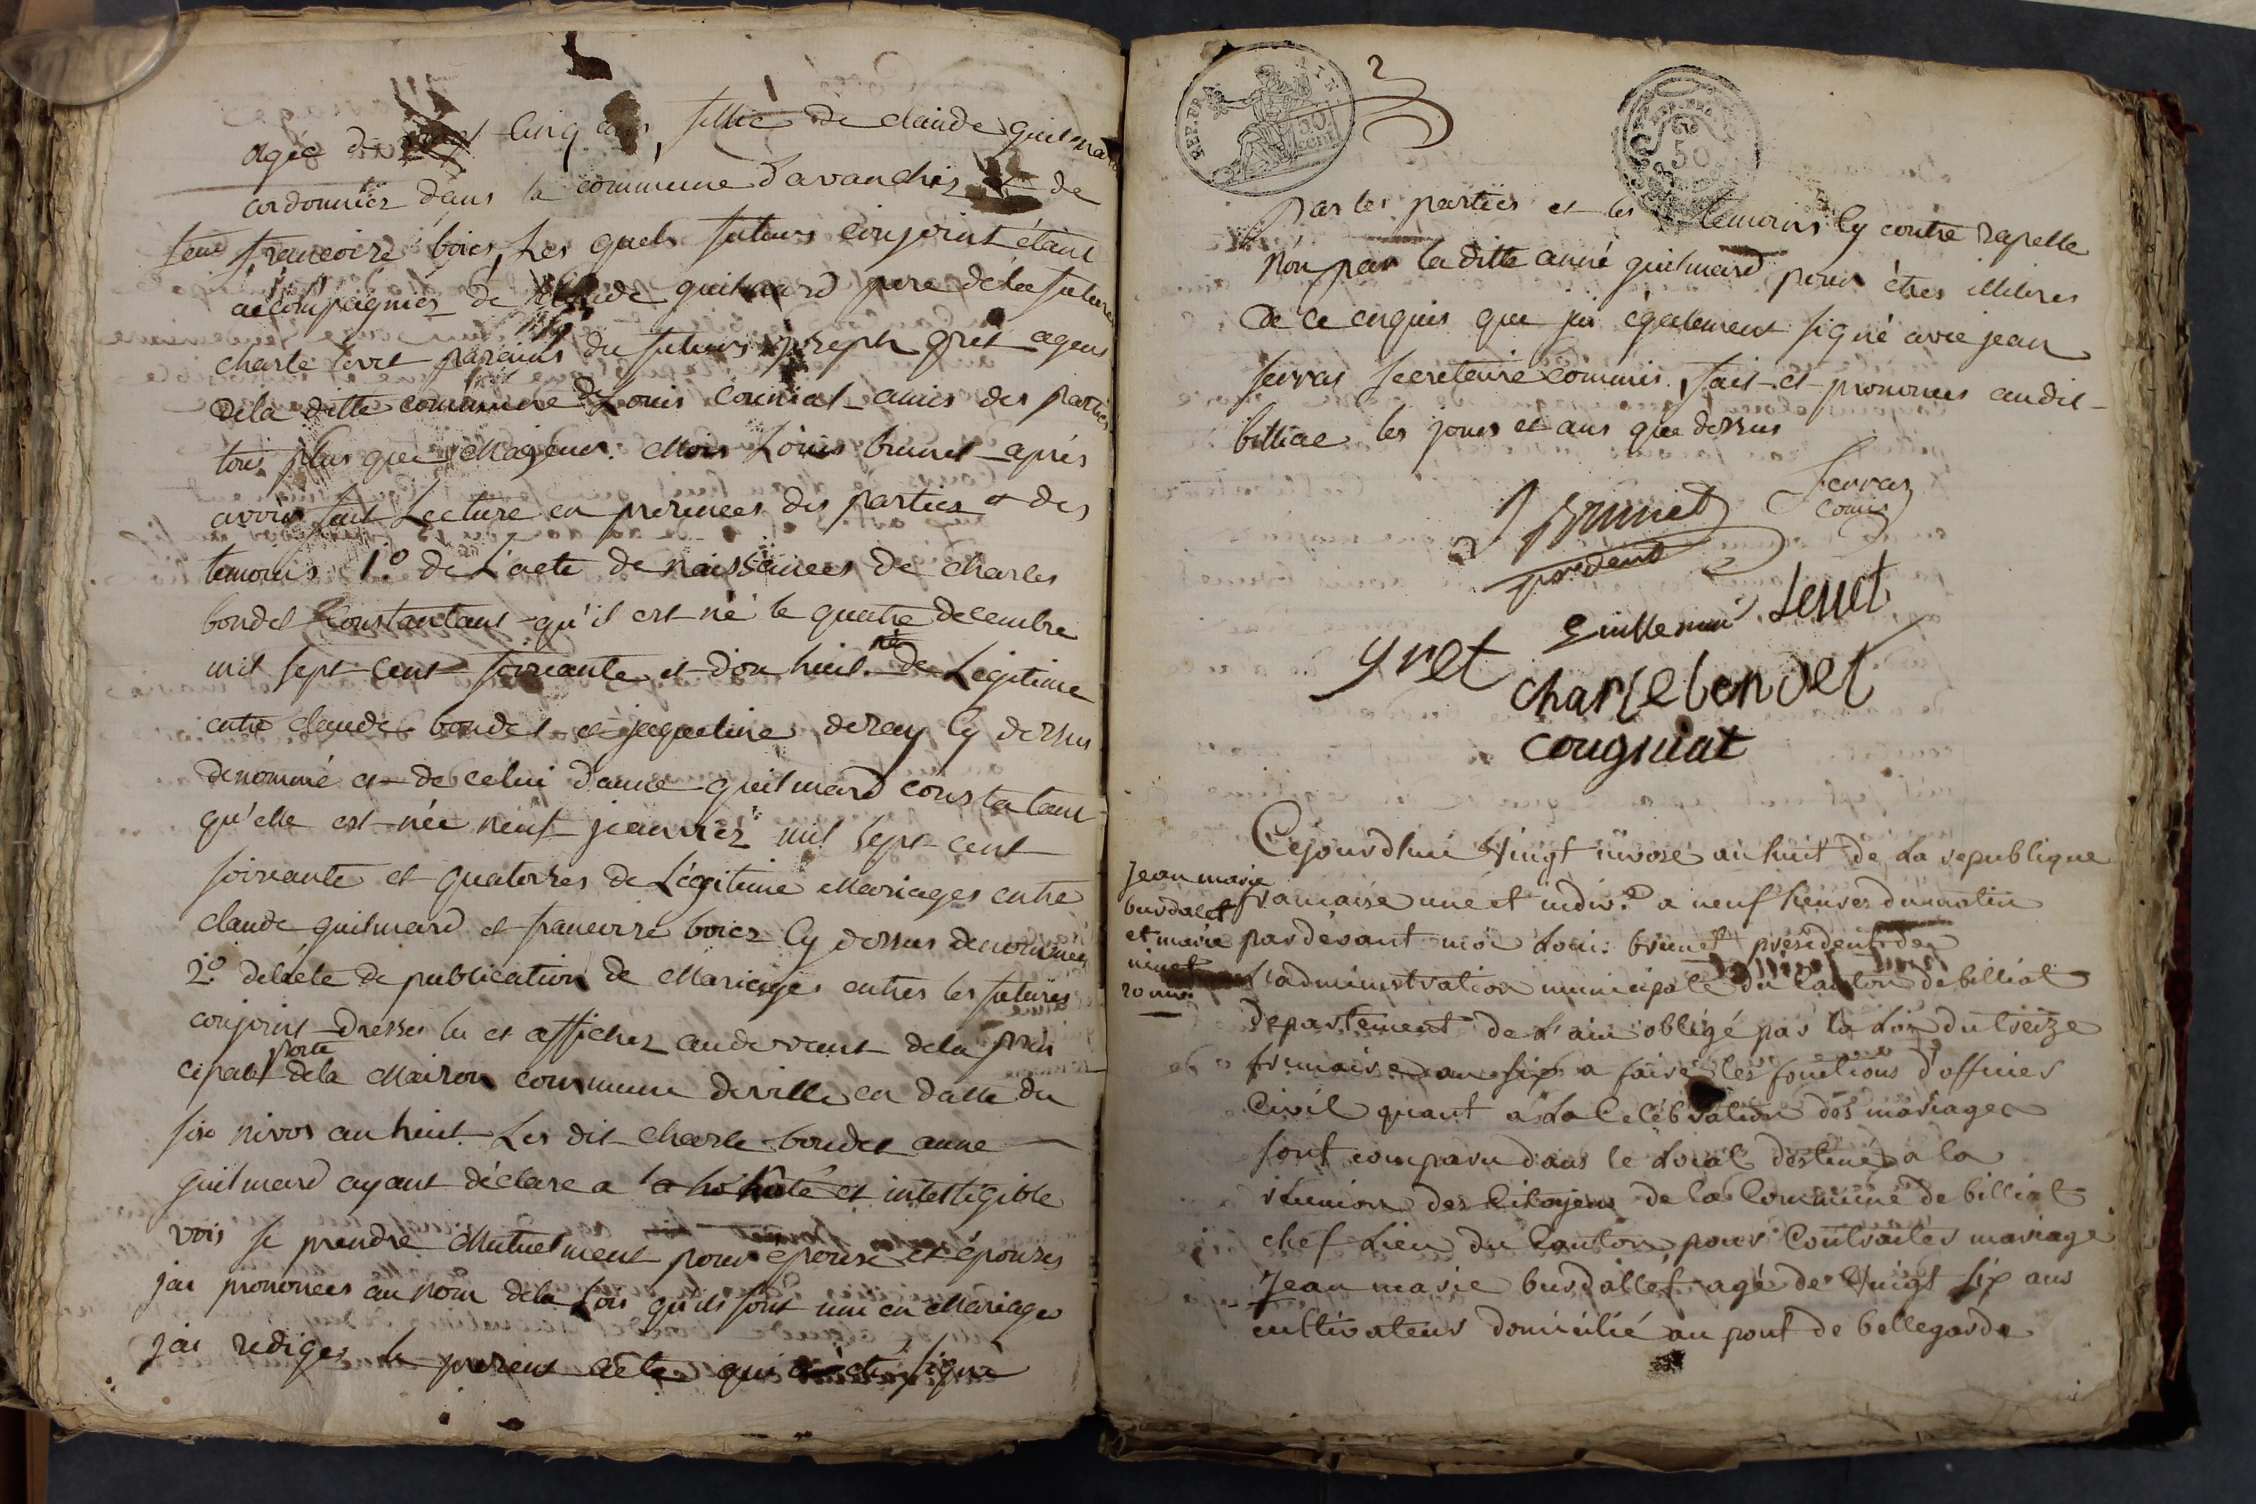 agée de vingt cinq ans, fillie de claude guilmard
cordonnier dans la commune d'avanchis et de
feue francoise boies, Les quels futurs conjoint étant
accompagniez de claude guilmard pere dela future
charle livet parains du futurs joseph gret agens
dela ditte commune Louis couniat amis des parties
tous plus que Majeurs. Mois Louis brunet après
avoir fait Lecture en presences des parties et des
temoins 1.º de L'acte de naissances de charles
bondet Constantant qu'il est né le quatre decembre
mil sept cent soixante et dix huit né de Légitime
entre claude bondet et jaqueline derey cy dessus
denommé et de celui d'anne guilmard constatant
qu'elle est née neuf jeanvier mil sept cent
soixante et quatorzes de Légitime Mariages entre
claude guilmard et francoise boiez Cy dessus denommés
2.º delacte de publication de Mariages entres les futures
conjoins dresser lu et afficher audevant dela prin
cipale porte dela Maison commune deville en datte du
six nivos an huit Les dit charle bondet anne
guilmard ayant déclare a la hote et intelligible
vois se prendre Mutuelment pour epouse et épouses
jai prononces au nom dela Lois qu'ils sont uni en Mariage
jai rediges le present acte qui a eté signé
REP. FRA.
50
cent
50
par les parties et les temoins Cy contre rapelle
Non par la ditte anné guilmard pour êtres illitres
de ce enquis que jai également signé avec jean
ferras secretaire commis. fait et prononces audit
billiac les jours et ans que dessus
Ferras
comis
Brunet
president
guillemin Leuet
gret
charle bondet
cougniat
Cejourdhui Vingt nivose an huit de La republique
Jean marie
burdalet
et marie
ninet
20 niv.
francaise une et indiv.e a neuf heures dumatin
pardevant moi Louis brunet president de
L'administration municipale du Canton de billiat
departement de L'ain obligé par la Loi du treize
frimaire an six a faire les fonctions d'officier
Civil quant a La Celébration des mariages
sont comparu dans le Local destiné a la
reunion des Citoyens de la Commune de billiat
chef Lieu du Canton, pour Contracter mariage
Jean marie burdallet agé de Vingt six ans
cultivateur domicilié au pont de bellegarde